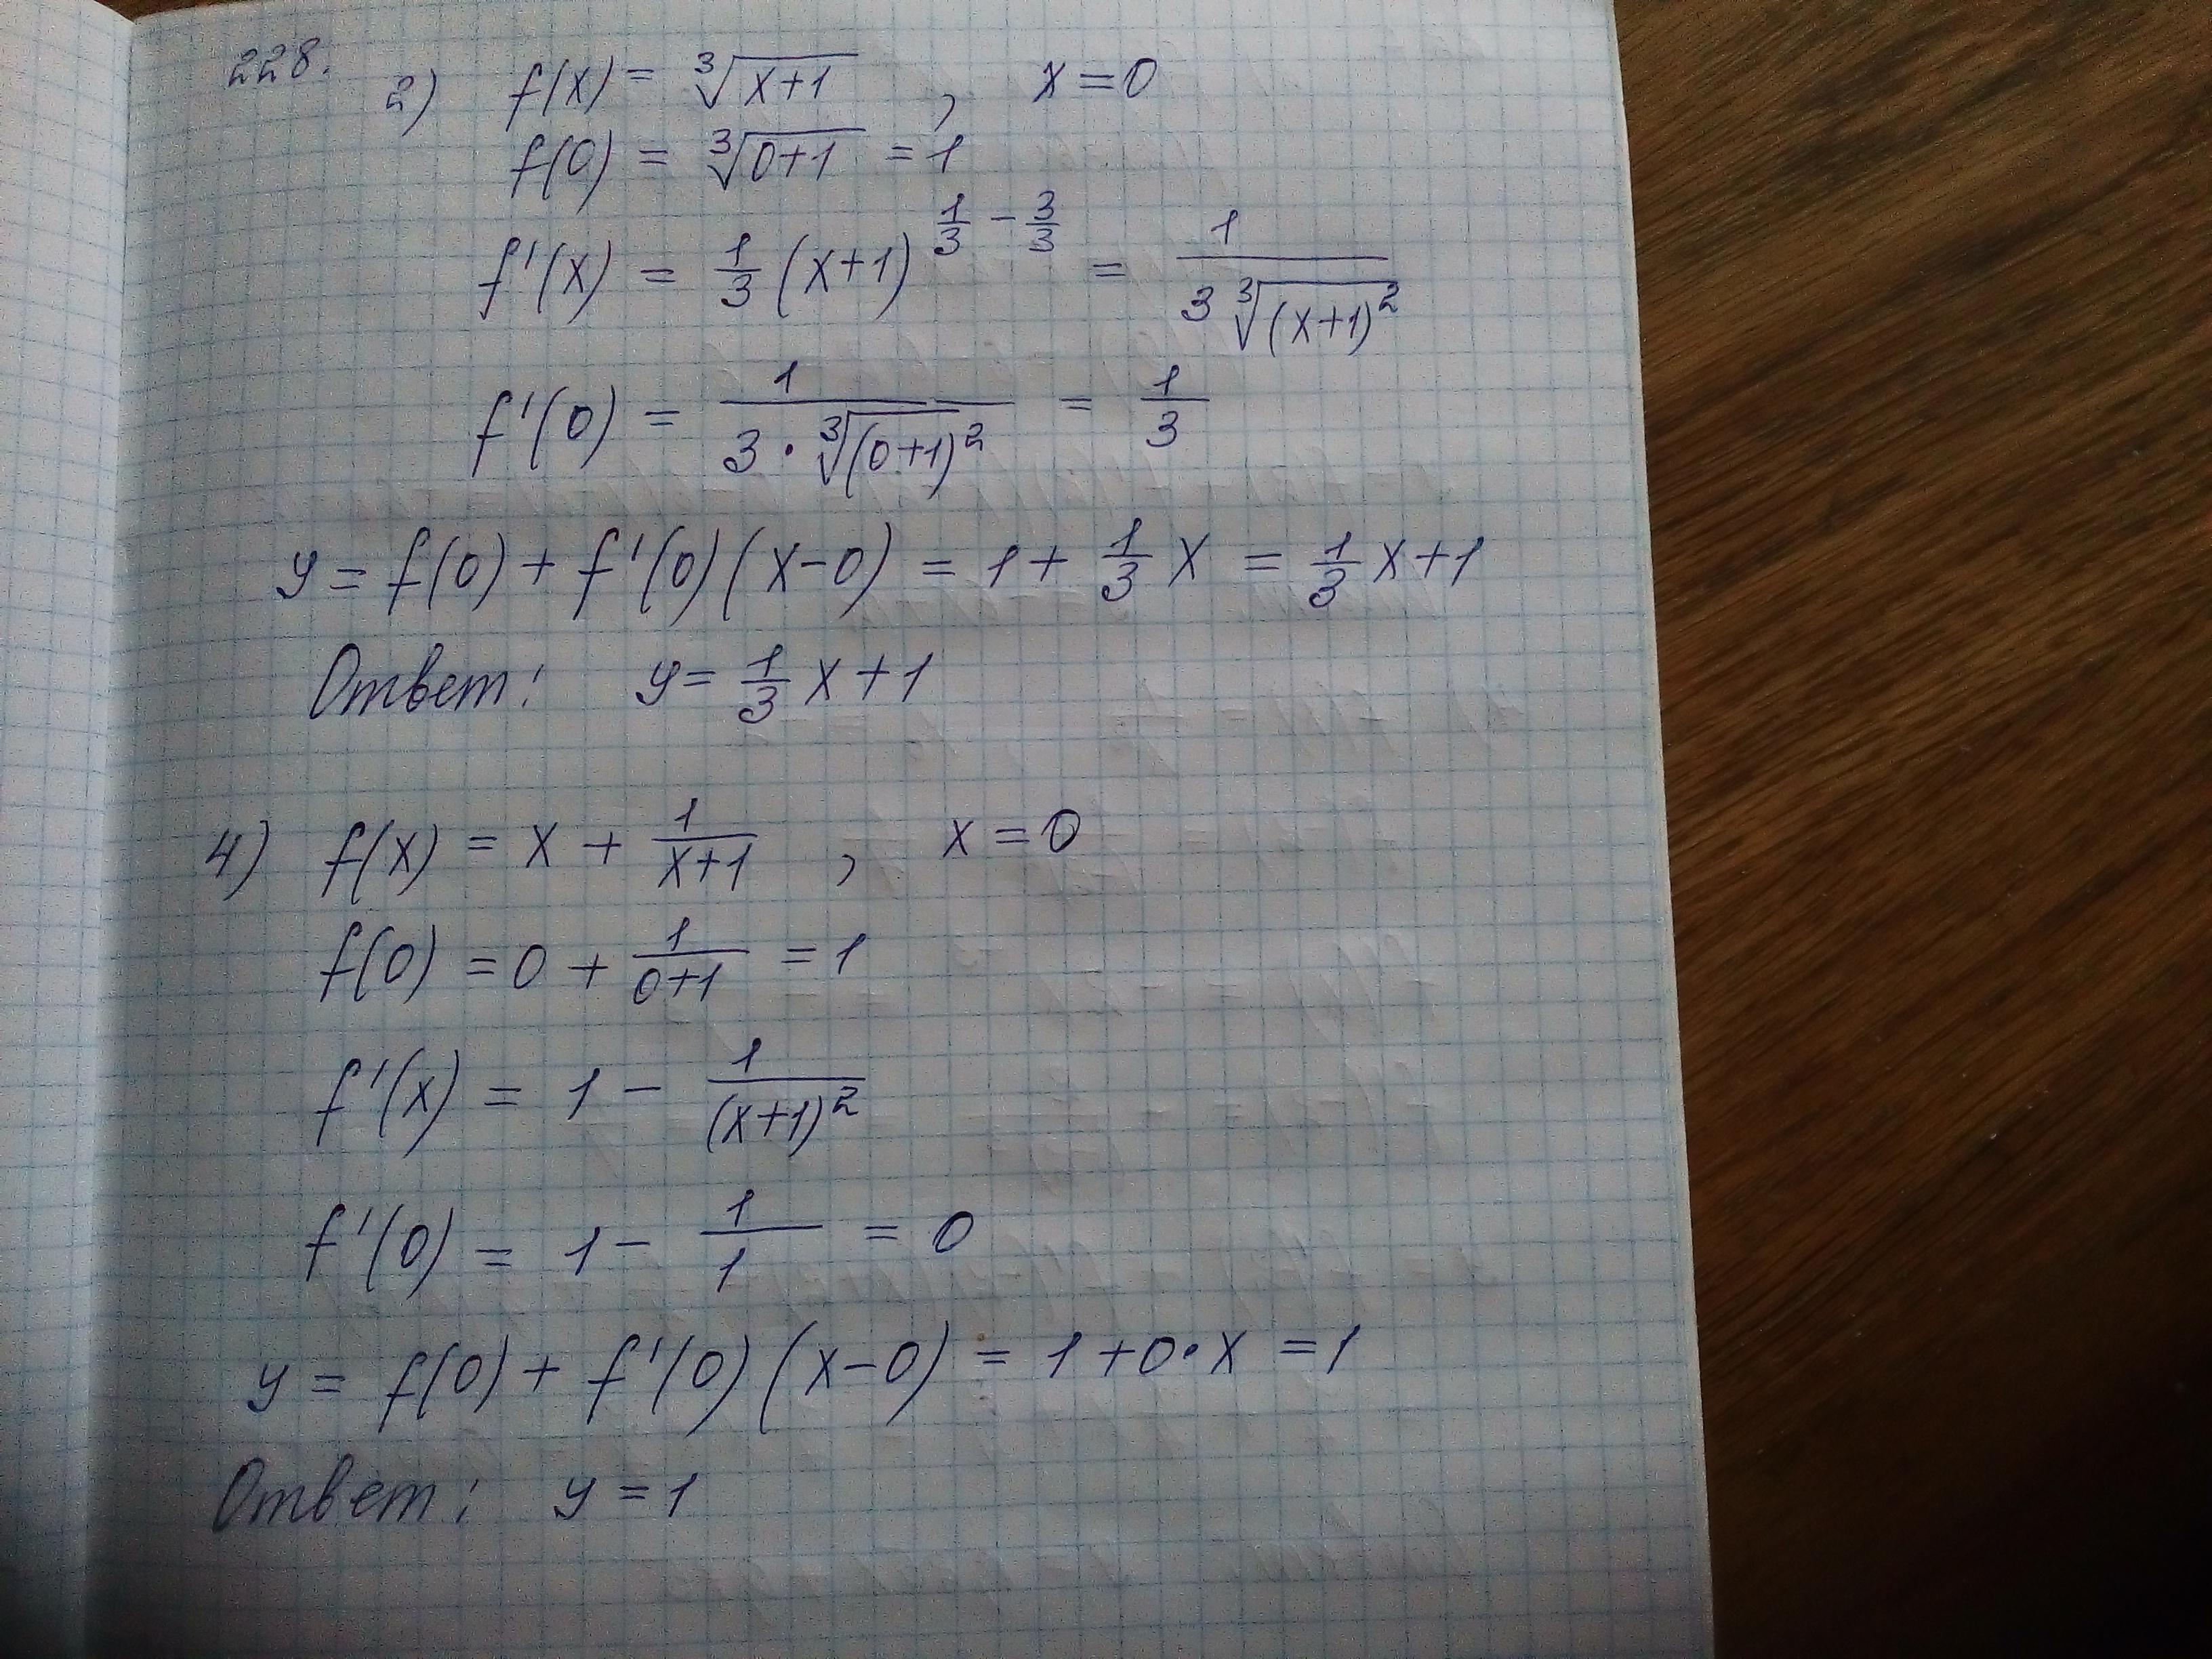 228.
2) f(x) = ∛(x+1) , x=0
f(0) = ∛(0+1) = 1
f'(x) = 1/3 (x+1)^(1/3 - 3/3) = 1/(3∛((x+1)²))
f'(0) = 1/(3·∛((0+1)²)) = 1/3
y = f(0) + f'(0)(x-0) = 1 + 1/3 x = 1/3 x+1
Ответ: y = 1/3 x + 1
4) f(x) = x + 1/(x+1) , x = 0
f(0) = 0 + 1/(0+1) = 1
f'(x) = 1 - 1/(x+1)²
f'(0) = 1 - 1/1 = 0
y = f(0) + f'(0)(x-0) = 1+0·x = 1
Ответ: y = 1